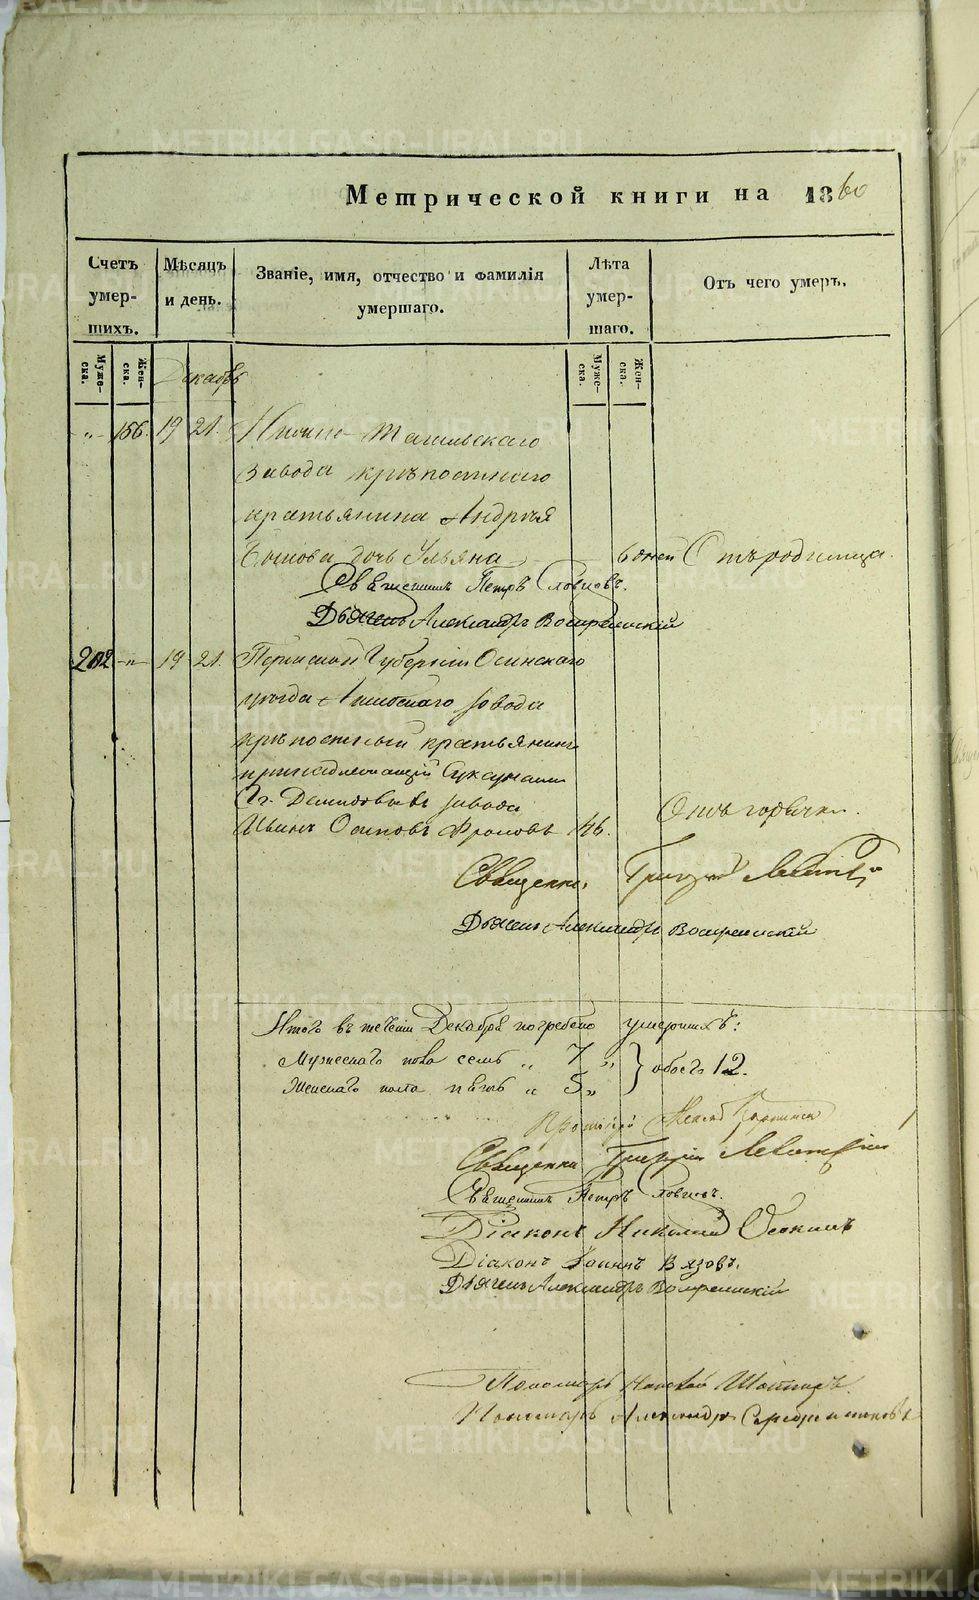 Метрической книги на 1860
Счетъ умер- шихъ.
Мѣсяцъ и день.
Званіе, имя, отчество и фамилія умершаго.
Лѣта умер- шаго.
Отъ чего умеръ.
Муже- ска.
Жен- ска.
Муже- ска.
Жен- ска.
Декабрь
156. 19 21. Нижне-Тагильскаго
завода крѣпостнаго
крестьянина Андрея
дочь Ульяна 6 дней Отъ родимца.
Священникъ Петръ Словцовъ.
Дьячекъ Александръ Воскресенскій
202 19 21. Пермской Губерніи Осинскаго
уѣзда завода
крѣпостный крестьянинъ
принадлежащій
Гг. Демидовыхъ завода
Осиповъ Фроловъ 46. Отъ горячки.
Священникъ Григорій Левитскій
Дьячекъ Александръ Воскресенскій
Итого въ теченіи Декабря погребено умершихъ:
Мужескаго пола семь „ 7 „
Женскаго пола пять „ 5 „
обоего 12.
Протоіерей
Священникъ Григорій Левитскій
Священникъ Петръ Словцовъ.
Діаконъ Николай Осокинъ
Діаконъ Іоаннъ Вязовъ.
Дьячекъ Александръ Воскресенскій
Пономарь
Пономарь Александръ Серебренниковъ
METRIKI.GASO-URAL.RU